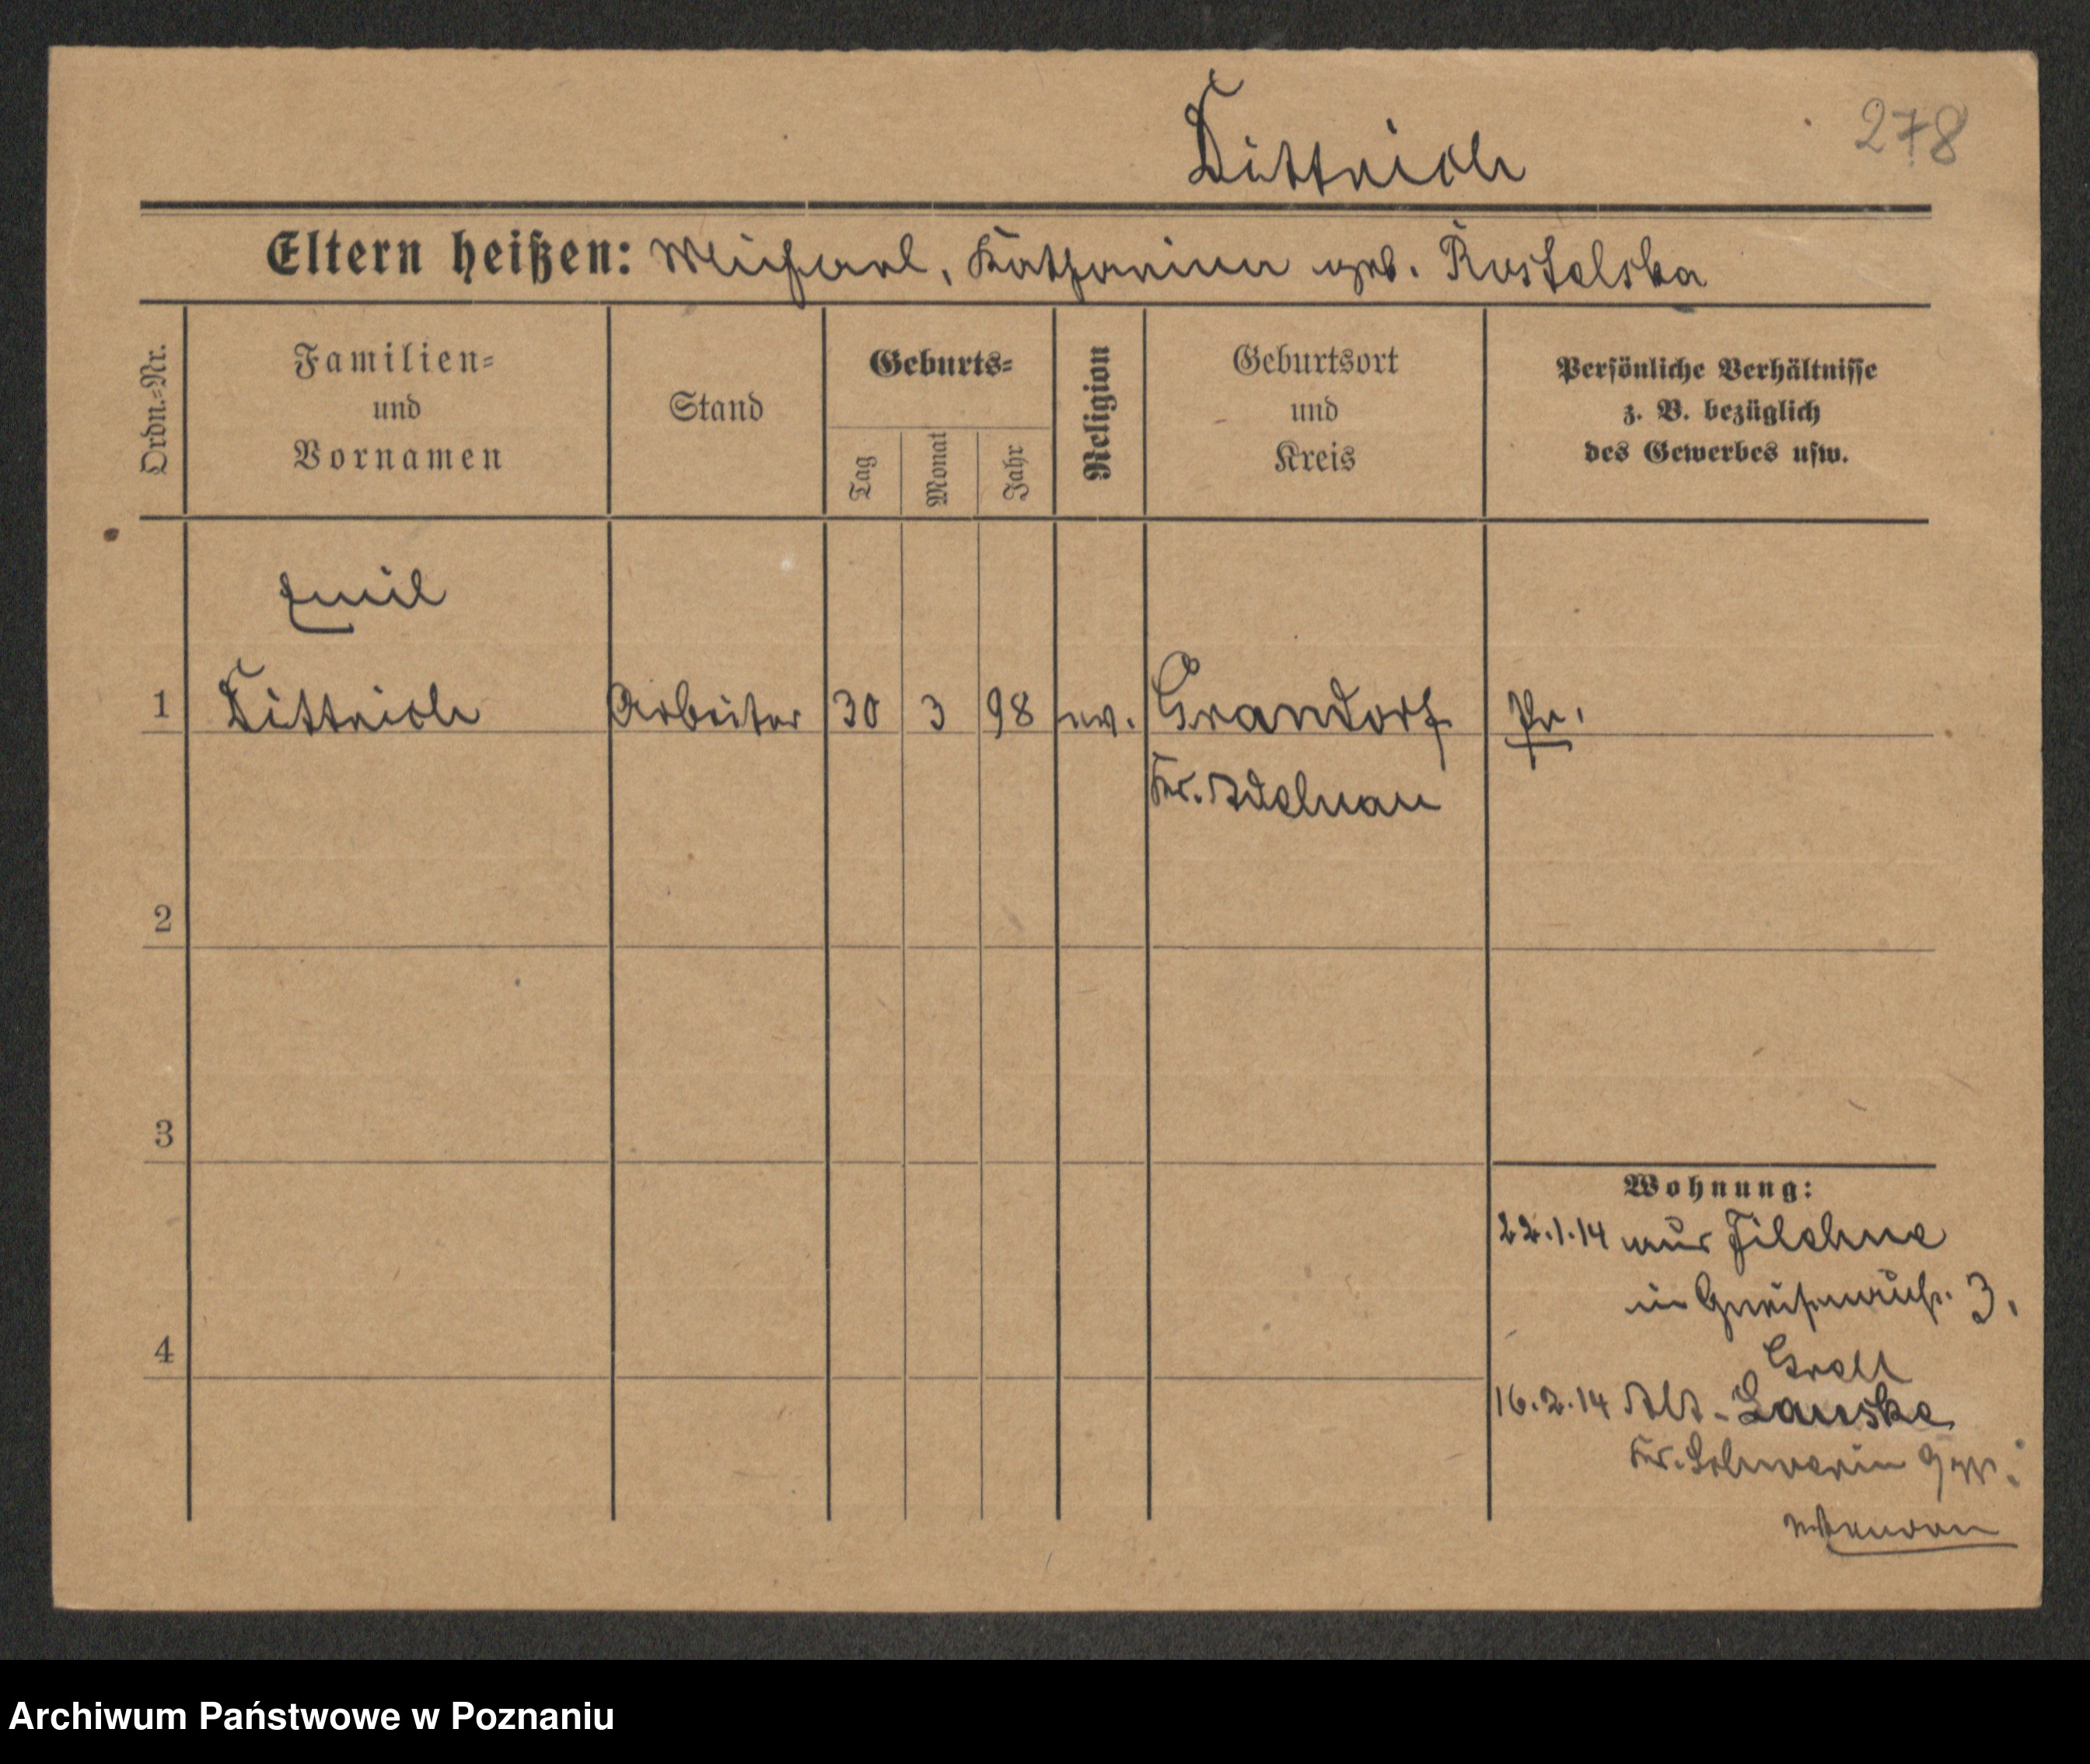 278
Dittrich
Eltern heißen: Michael, Katharina geb. Rostalska
Ordn.-Nr.
Familien-
und
Vornamen
Stand
Geburts-
Tag
Monat
Jahr
Religion
Geburtsort
und
Kreis
Persönliche Verhältnisse
z. B. bezüglich
des Gewerbes usw.
Emil
1 Dittrich Arbeiter 30 3 98 ev. Grandorf Pr.
Kr. Adelnau
2
3
4
Wohnung:
22.1.14 aus Filehne
in 3.
16.2.14 Alt-Lauske
Kr. Schwerin
Archiwum Państwowe w Poznaniu